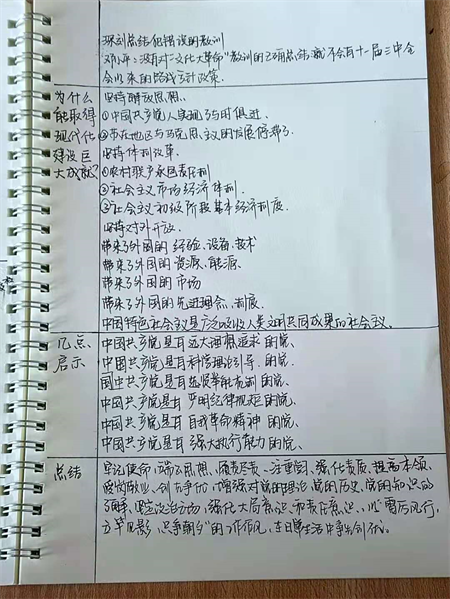 深刻总结犯错误的教训
邓小平:没有对"文化大革命"教训的正确总结,就不会有十一届三中全
会以来的路线方针政策.
为什么 坚持解放思想.
能取得 ①中国共产党人实现了与时俱进.
现代化 ②苏在地区与马克思主义的发展停滞了.
建设巨 坚持体制改革.
大成就? ①农村联产承包责任制
②社会主义市场经济体制.
③社会主义初级阶段基本经济制度.
坚持对外开放.
带来了外国的经验、设备、技术
带来了外国的资源、能源.
带来了外国的市场
带来了外国的先进理念、制度.
中国特色社会主义是广泛吸收人类文明共同成果的社会主义.
几点 中国共产党是有远大理想追求的党、
启示 中国共产党是有科学理论引导的党、
国中共产党是有选贤举能机制的党、
中国共产党是有严明纪律规矩的党、
中国共产党是有自我革命精神的党、
中国共产党是有强大执行能力的党、
总结 牢记使命,端正思想,履责尽责、注重学习、强化责质、提高本领、
爱岗敬业、创先争优,增强对党的理论、党的历史、党的知识的
了解,坚定政治立场,强化大局意识、和责任意识、以"雷厉风行,
立竿见影,只争朝夕"的工作作风,在日常生活中争先创优。